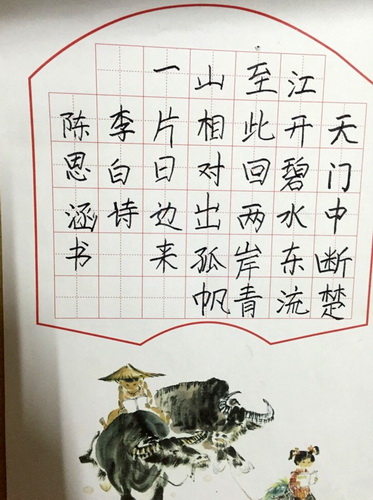 天门中断楚
江开碧水东流
至此回两岸青
山相对出孤帆
一片日边来
李白诗
陈思涵书